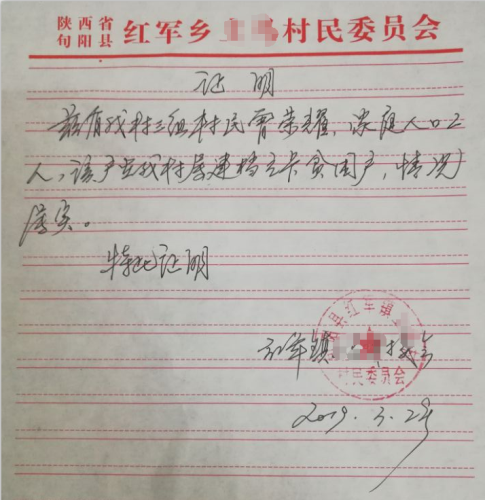 陕西省
旬阳县 红军乡 村民委员会
证明
兹有我村三组村民曾荣耀，家庭人口2
人，该户在我村属建档立卡贫困户，情况
属实。
特此证明
红军镇 村委会
县红军镇
村民委员会
2019.3.28号